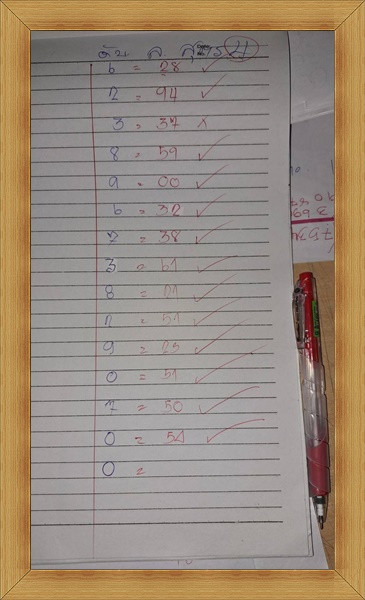 ดับ ล. สูตร 4
6 = 28 ✓
2 = 94 ✓
3 = 37 ×
8 = 59 ✓
9 = 00 ✓
6 = 32 ✓
2 = 38 ✓
3 = 61 ✓
8 = 21 ✓
2 = 51 ✓
9 = 23 ✓
0 = 51 ✓
7 = 50 ✓
0 = 54 ✓
0 =